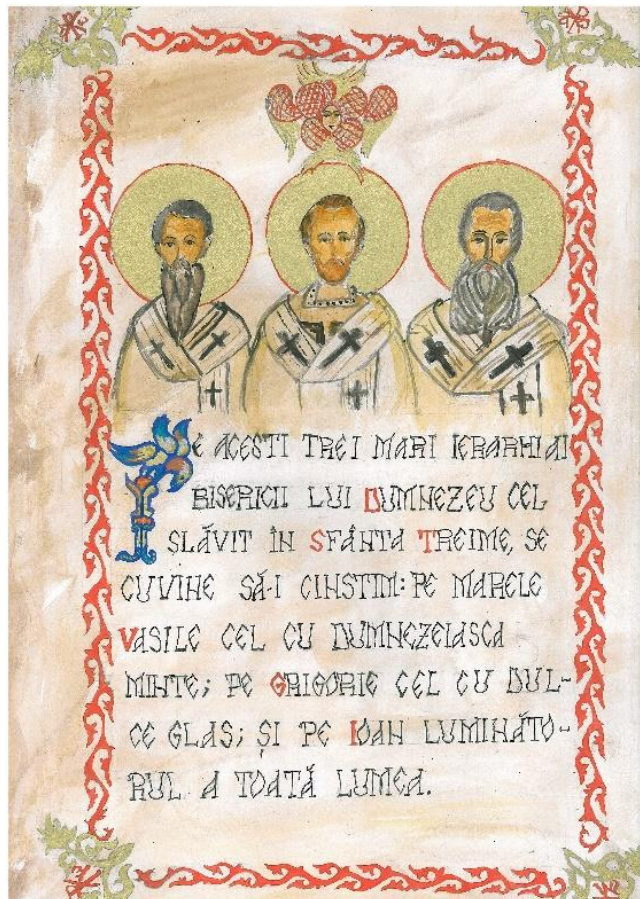 PE ACESTI TREI MARI IERARHI AI
BISERICII LUI DUMNEZEU CEL
SLĂVIT ÎN SFÂNTA TREIME, SE
CUVINE SĂ-I CINSTIM: PE MARELE
VASILE CEL CU DUMNEZEIASCA
MINTE; PE GRIGORIE CEL CU DUL-
CE GLAS; ȘI PE IOAN LUMINĂTO-
RUL A TOATĂ LUMEA.